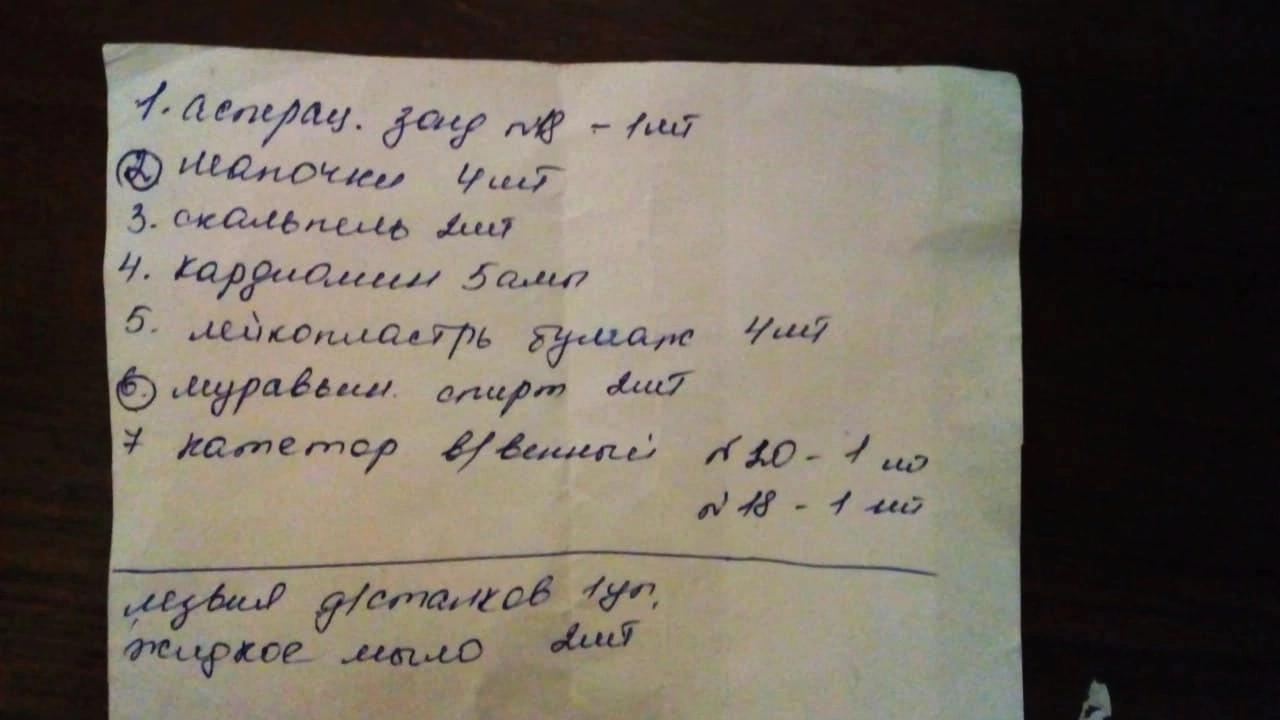 1. аспрац. зонд №18 - 1шт
2 шапочки 4шт
3. скальпель 2шт
4. кардиомин 5 амп
5. лейкопластрь бумаж 4шт
6. муравьин. спирт 2шт
7 катетор в/венный №20 - 1 шт
№18 - 1 шт
лезвия д/станков 1уп.
жидкое мыло 2шт